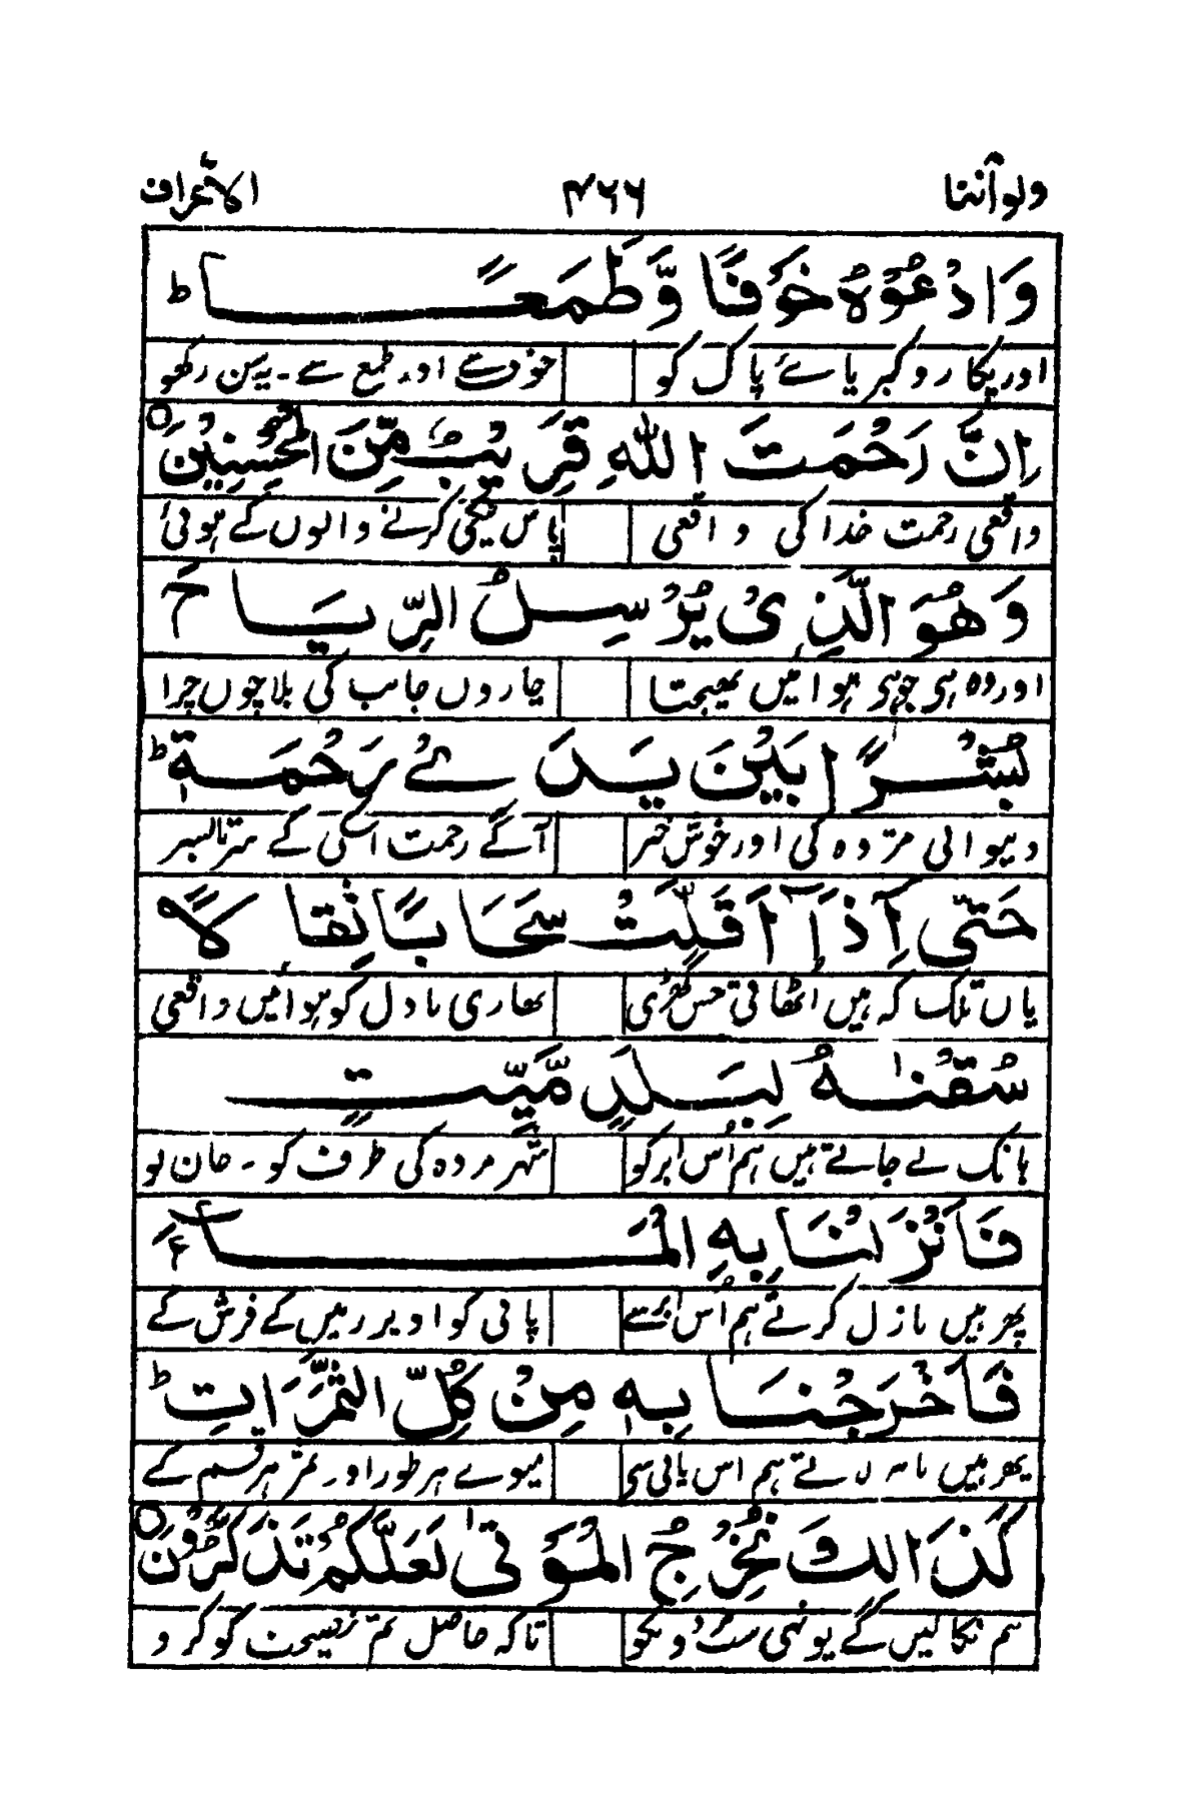 ولو اننا ۴۶۶ الاعراف
وَادْعُوْهُ خَوْفًا وَّطَمَعًا ؕ
اور پکارو کبریائے پاک کو خوف سے اور طمع سے ۔ یہ سن رکھو
اِنَّ رَحْمَتَ اللّٰهِ قَرِيْبٌ مِّنَ الْمُحْسِنِيْنَ ○
واقعی رحمت خدا کی واقعی پاس نیکی کرنے والوں کے ہوئی
وَهُوَ الَّذِىْ يُرْسِلُ الرِّيَاحَ
اور وہ ہی جو ہی ہوائیں بھیجتا چاروں جانب کی بلا چوں چرا
بُشْرًا بَيْنَ يَدَىْ رَحْمَتِهٖ ؕ
دینوالی مژدہ کی اور خوش خبر آگے رحمت اسکی کے سرتابسر
حَتّٰى اِذَآ اَقَلَّتْ سَحَابًا ثِقَالًا
یاں تلک کہ ہیں اٹھاتی جس گھڑی بھاری بادل کو ہوائیں واقعی
سُقْنٰهُ لِبَلَدٍ مَّيِّتٍ
ہانک لے جاتے ہیں ہم اُس ابر کو شہر مردہ کی طرف کو ۔ جان لو
فَاَنْزَلْنَا بِهِ الْمَآءَ
پھر ہیں نازل کرتے ہم اُس ابر سے پانی کو اوپر زمیں کے فرش کے
فَاَخْرَجْنَا بِهٖ مِنْ كُلِّ الثَّمَرَاتِ ؕ
پھر ہیں باہر لاتے ہم اس پانی سی میوے ہر طور اور ثمر ہر قسم کے
كَذَالِكَ نُخْرِجُ الْمَوْتٰى لَعَلَّكُمْ تَذَكَّرُوْنَ ○
ہم نکالیں گے یونہی مردونکو تاکہ حاصل تم نصیحت کو کرو